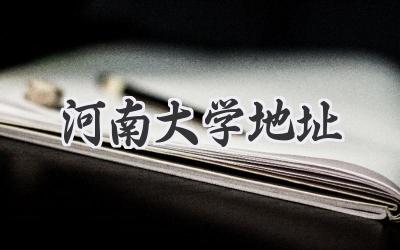 河南大学地址